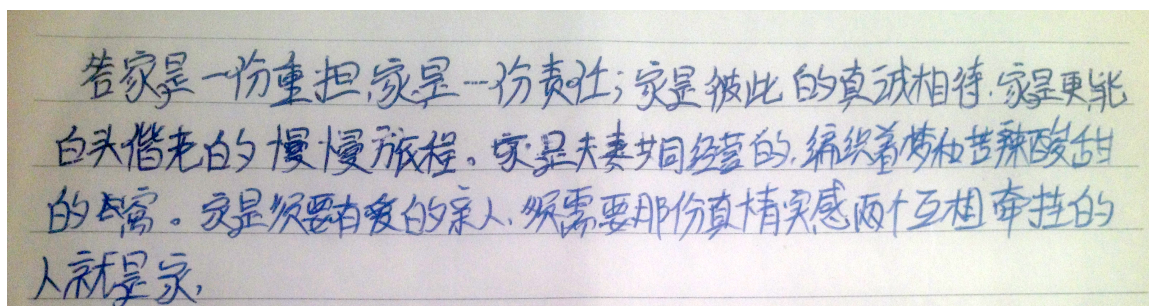 答家是一份重担,家是一份责任;家是彼此的真诚相待.家是更能
白头偕老的慢慢旅程。家是夫妻共同经营的,编织着梦和苦辣酸甜
的窝。家是须要有爱的亲人,须需要那份真情实感两个互相牵挂的
人就是家,